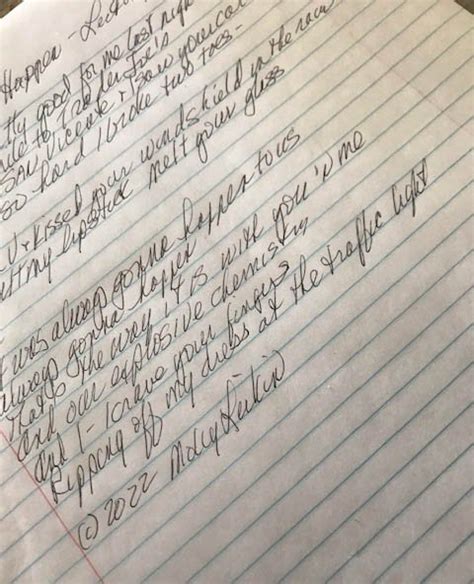 Happen - 
good for me last night
to Trader Joe's
San Vicente & saw your car
so hard I broke two toes -
& kissed your windshield in the rain
my lipstick melt your glass
was always gonna happen to us
always gonna happen
that's the way it is with you'n me
and our explosive chemistry
and I - I crave your fingers
Ripping off my dress at the traffic light
(c) 2022 Molly